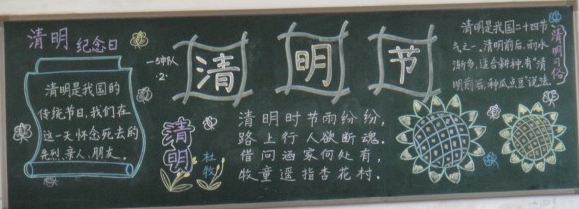 清明 纪念日
清明是我国的
传统节日,我们在
这一天怀念死去的
先烈、亲人、朋友。
一、
·2·
清 明 节
清明
杜牧
清明时节雨纷纷,
路上行人欲断魂.
借问酒家何处有,
牧童遥指杏花村.
清明是我国二十四节
气之一,清明前后,雨水
渐多,适合耕种,有"清
明前后,种瓜点豆"说法
清明习俗